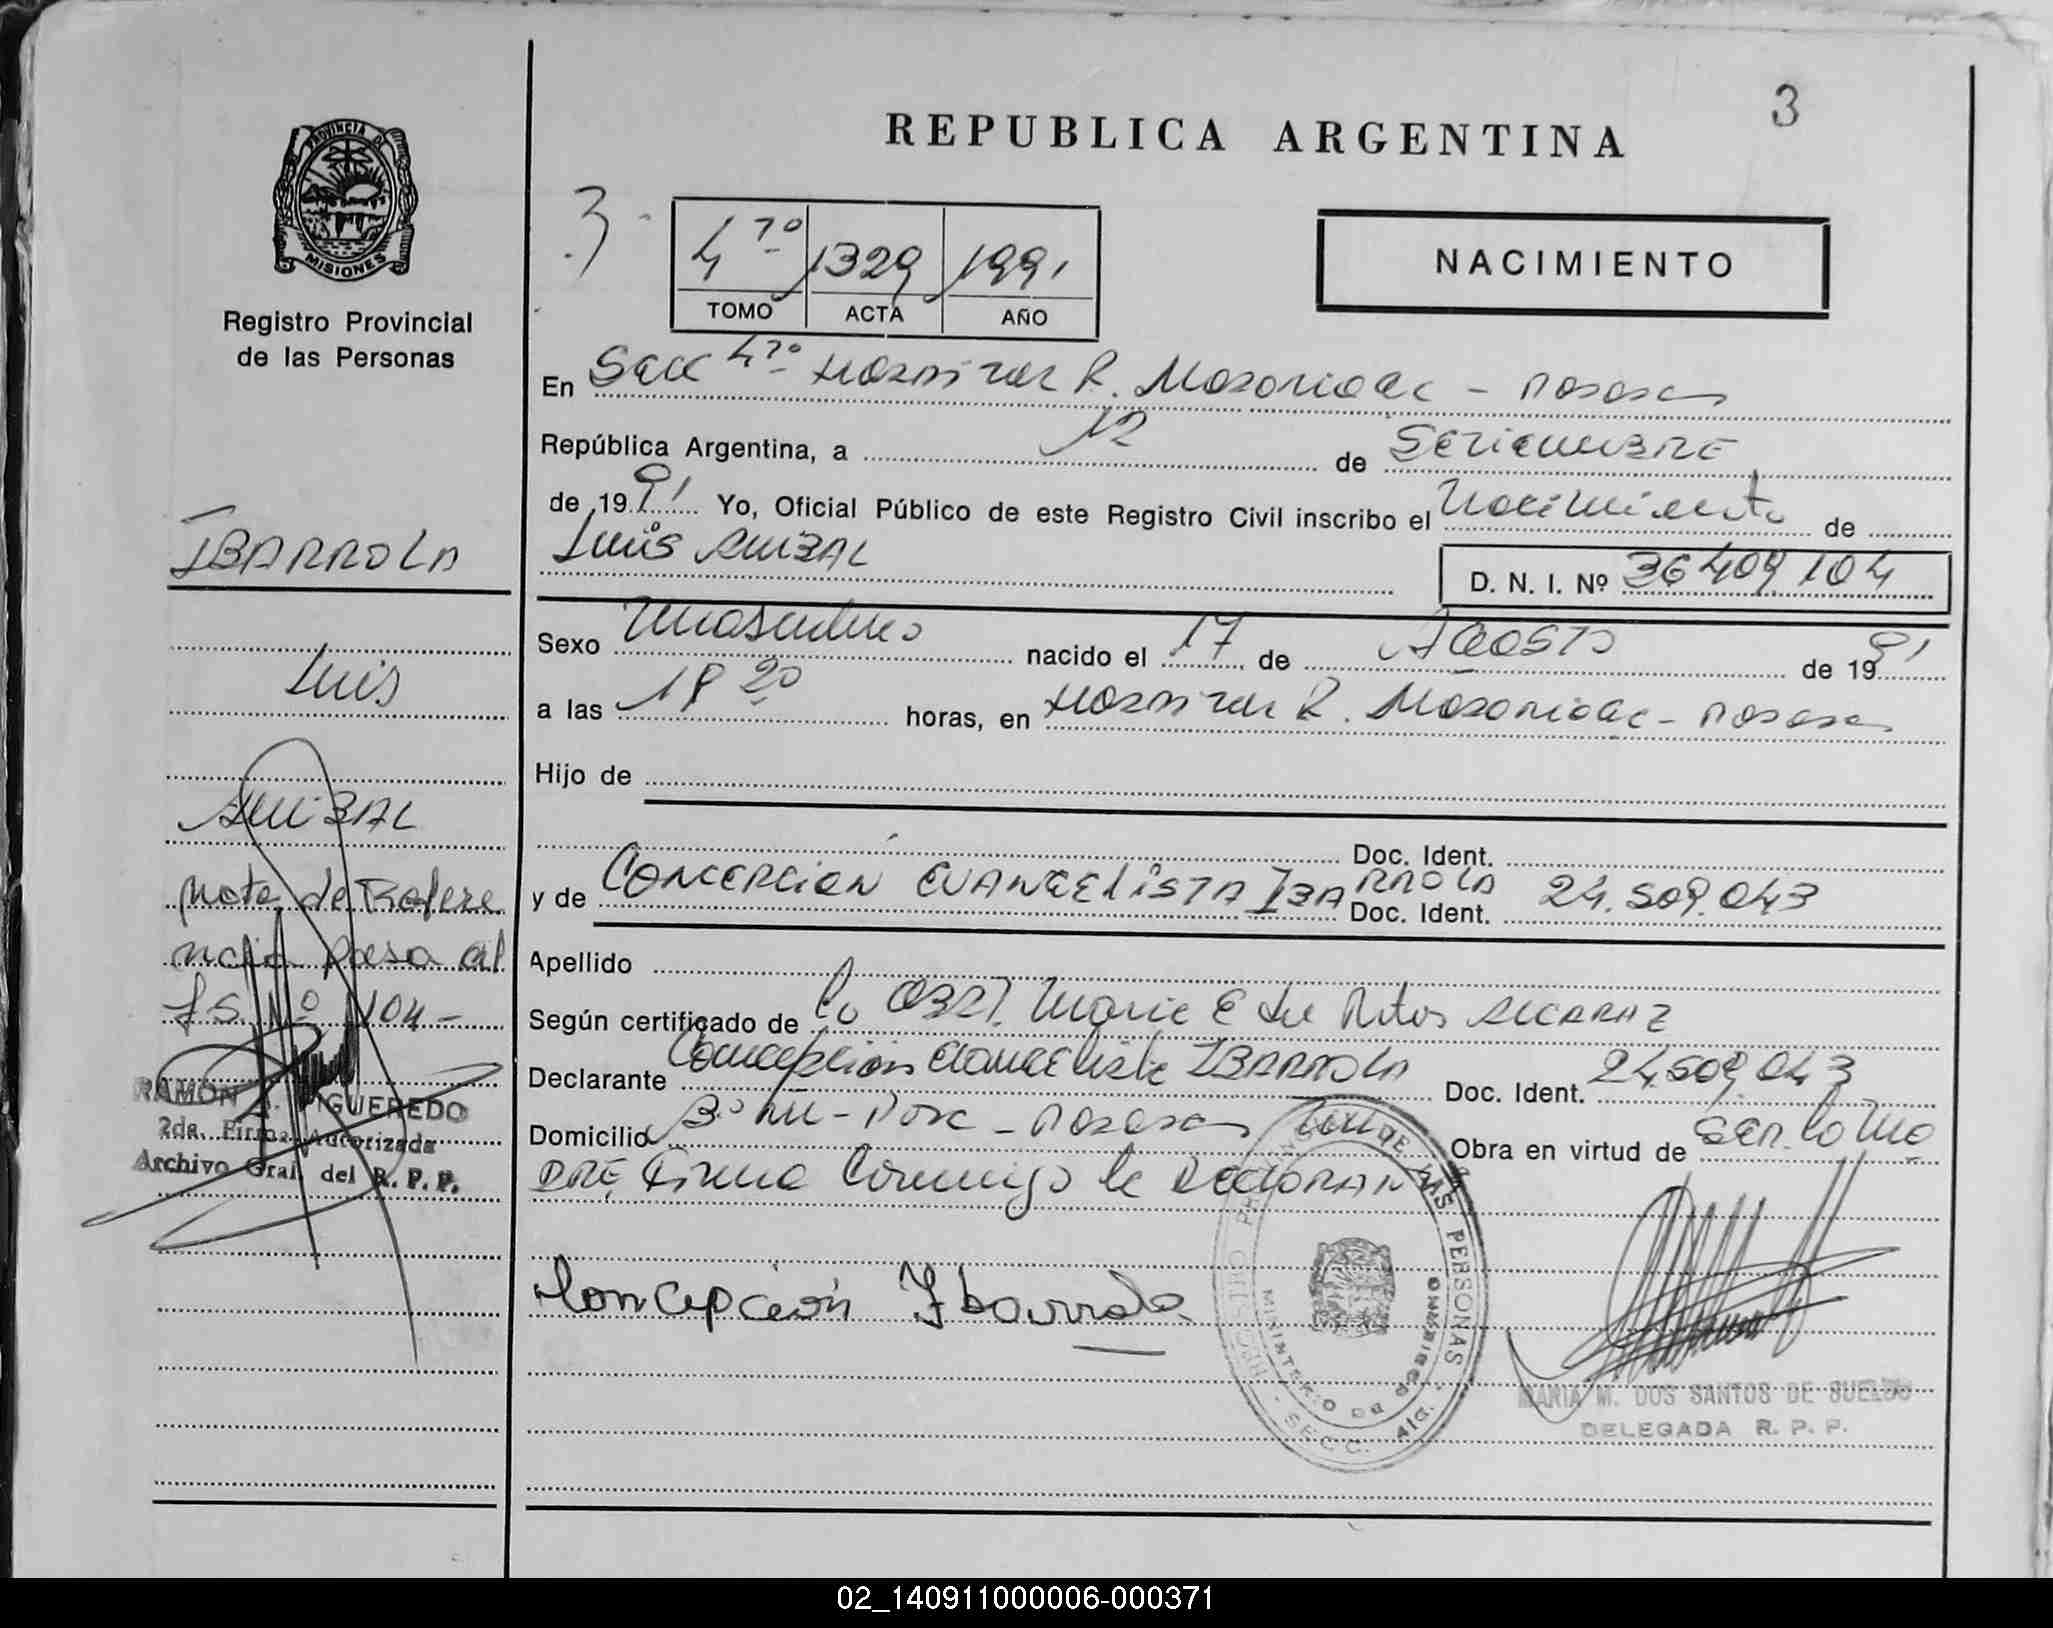 3
REPUBLICA ARGENTINA
PROVINCIA DE
MISIONES
Registro Provincial
de las Personas
3-
4to 1329 1991
TOMO ACTA AÑO
NACIMIENTO
En Secc 4to Hospital R. Madariaga - Posadas
República Argentina, a 12 de SETIEMBRE
de 1991 Yo, Oficial Público de este Registro Civil inscribo el Nacimiento de
Luis ANIBAL
D. N. I. Nº 36409104
Sexo Masculino nacido el 17 de AGOSTO de 1991
a las 18 20 horas, en Hospital R. Madariaga - Posadas
Hijo de
Doc. Ident.
y de CONCEPCION EVANGELISTA IBARROLA Doc. Ident. 24.509.043
Apellido
Según certificado de la OBST. Maria E de Matos ALCARAZ
Declarante Concepcion Evangelista IBARROLA Doc. Ident. 24.509.043
Domicilio Posadas Obra en virtud de Ser la Ma
DRE Firma Conmigo la DECLARANTE
Concepción Ibarrola
IBARROLA
Luis
ANIBAL
Nota de Refere
ncia pasa al
fs. Nº 1104-
RAMON FIGUEREDO
2da. Firma Autorizada
Archivo Gral. del R. P. P.
DE LAS PERSONAS
MINISTERIO DE GOBIERNO
SECC.
MARIA M. DOS SANTOS DE SUELDO
DELEGADA R. P. P.
02_140911000006-000371